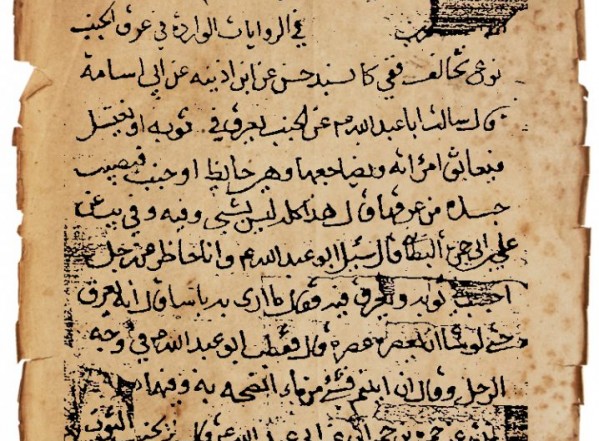 في الروايات الواردة في عرق الجنب
نوع تخالف ففي كا بسند حسن عن ابن اذينه عن ابي اسامة
قال سالت ابا عبد الله م عن الجنب يعرق في ثوبه او يغتسل
فيعانق امرأته ويضاجعها وهي حايض او جنب فيصيب
جسده من عرقها قال هذا كله ليس بشيى وفيه وفي يب عن
علي بن ابي حمزة قال سئل ابو عبد الله م وانا حاضر عن رجل
اجنب في ثوبه ويعرق فيه فقال ما ارى به باسا قال انه يعرق
حتى لو شاء ان يعصره عصره قال فقطب ابو عبد الله م في وجه
الرجل وقال ان ابيتم فشئ من ماء انضحه به وفيهما
عن حمزة بن حمران عن ابي عبد الله م قال الثوب